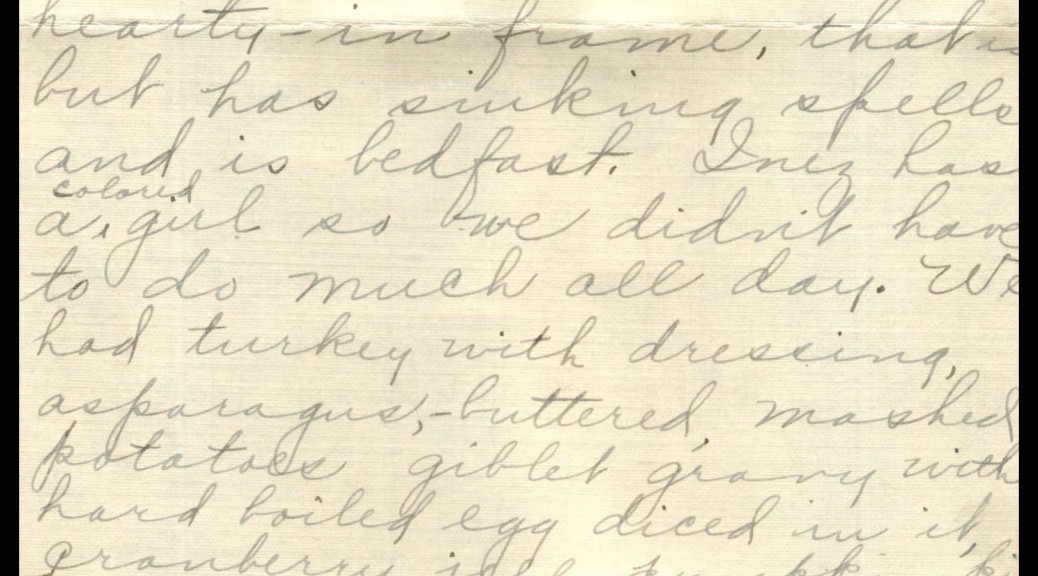 hearty - in frame, that is
but has sinking spells
and is bedfast. Inez has
colored
a, girl so we didn't have
to do much all day. We
had turkey with dressing,
asparagus, - buttered, mashed
potatoes giblet gravy with
hard boiled egg diced in it,
cranberry